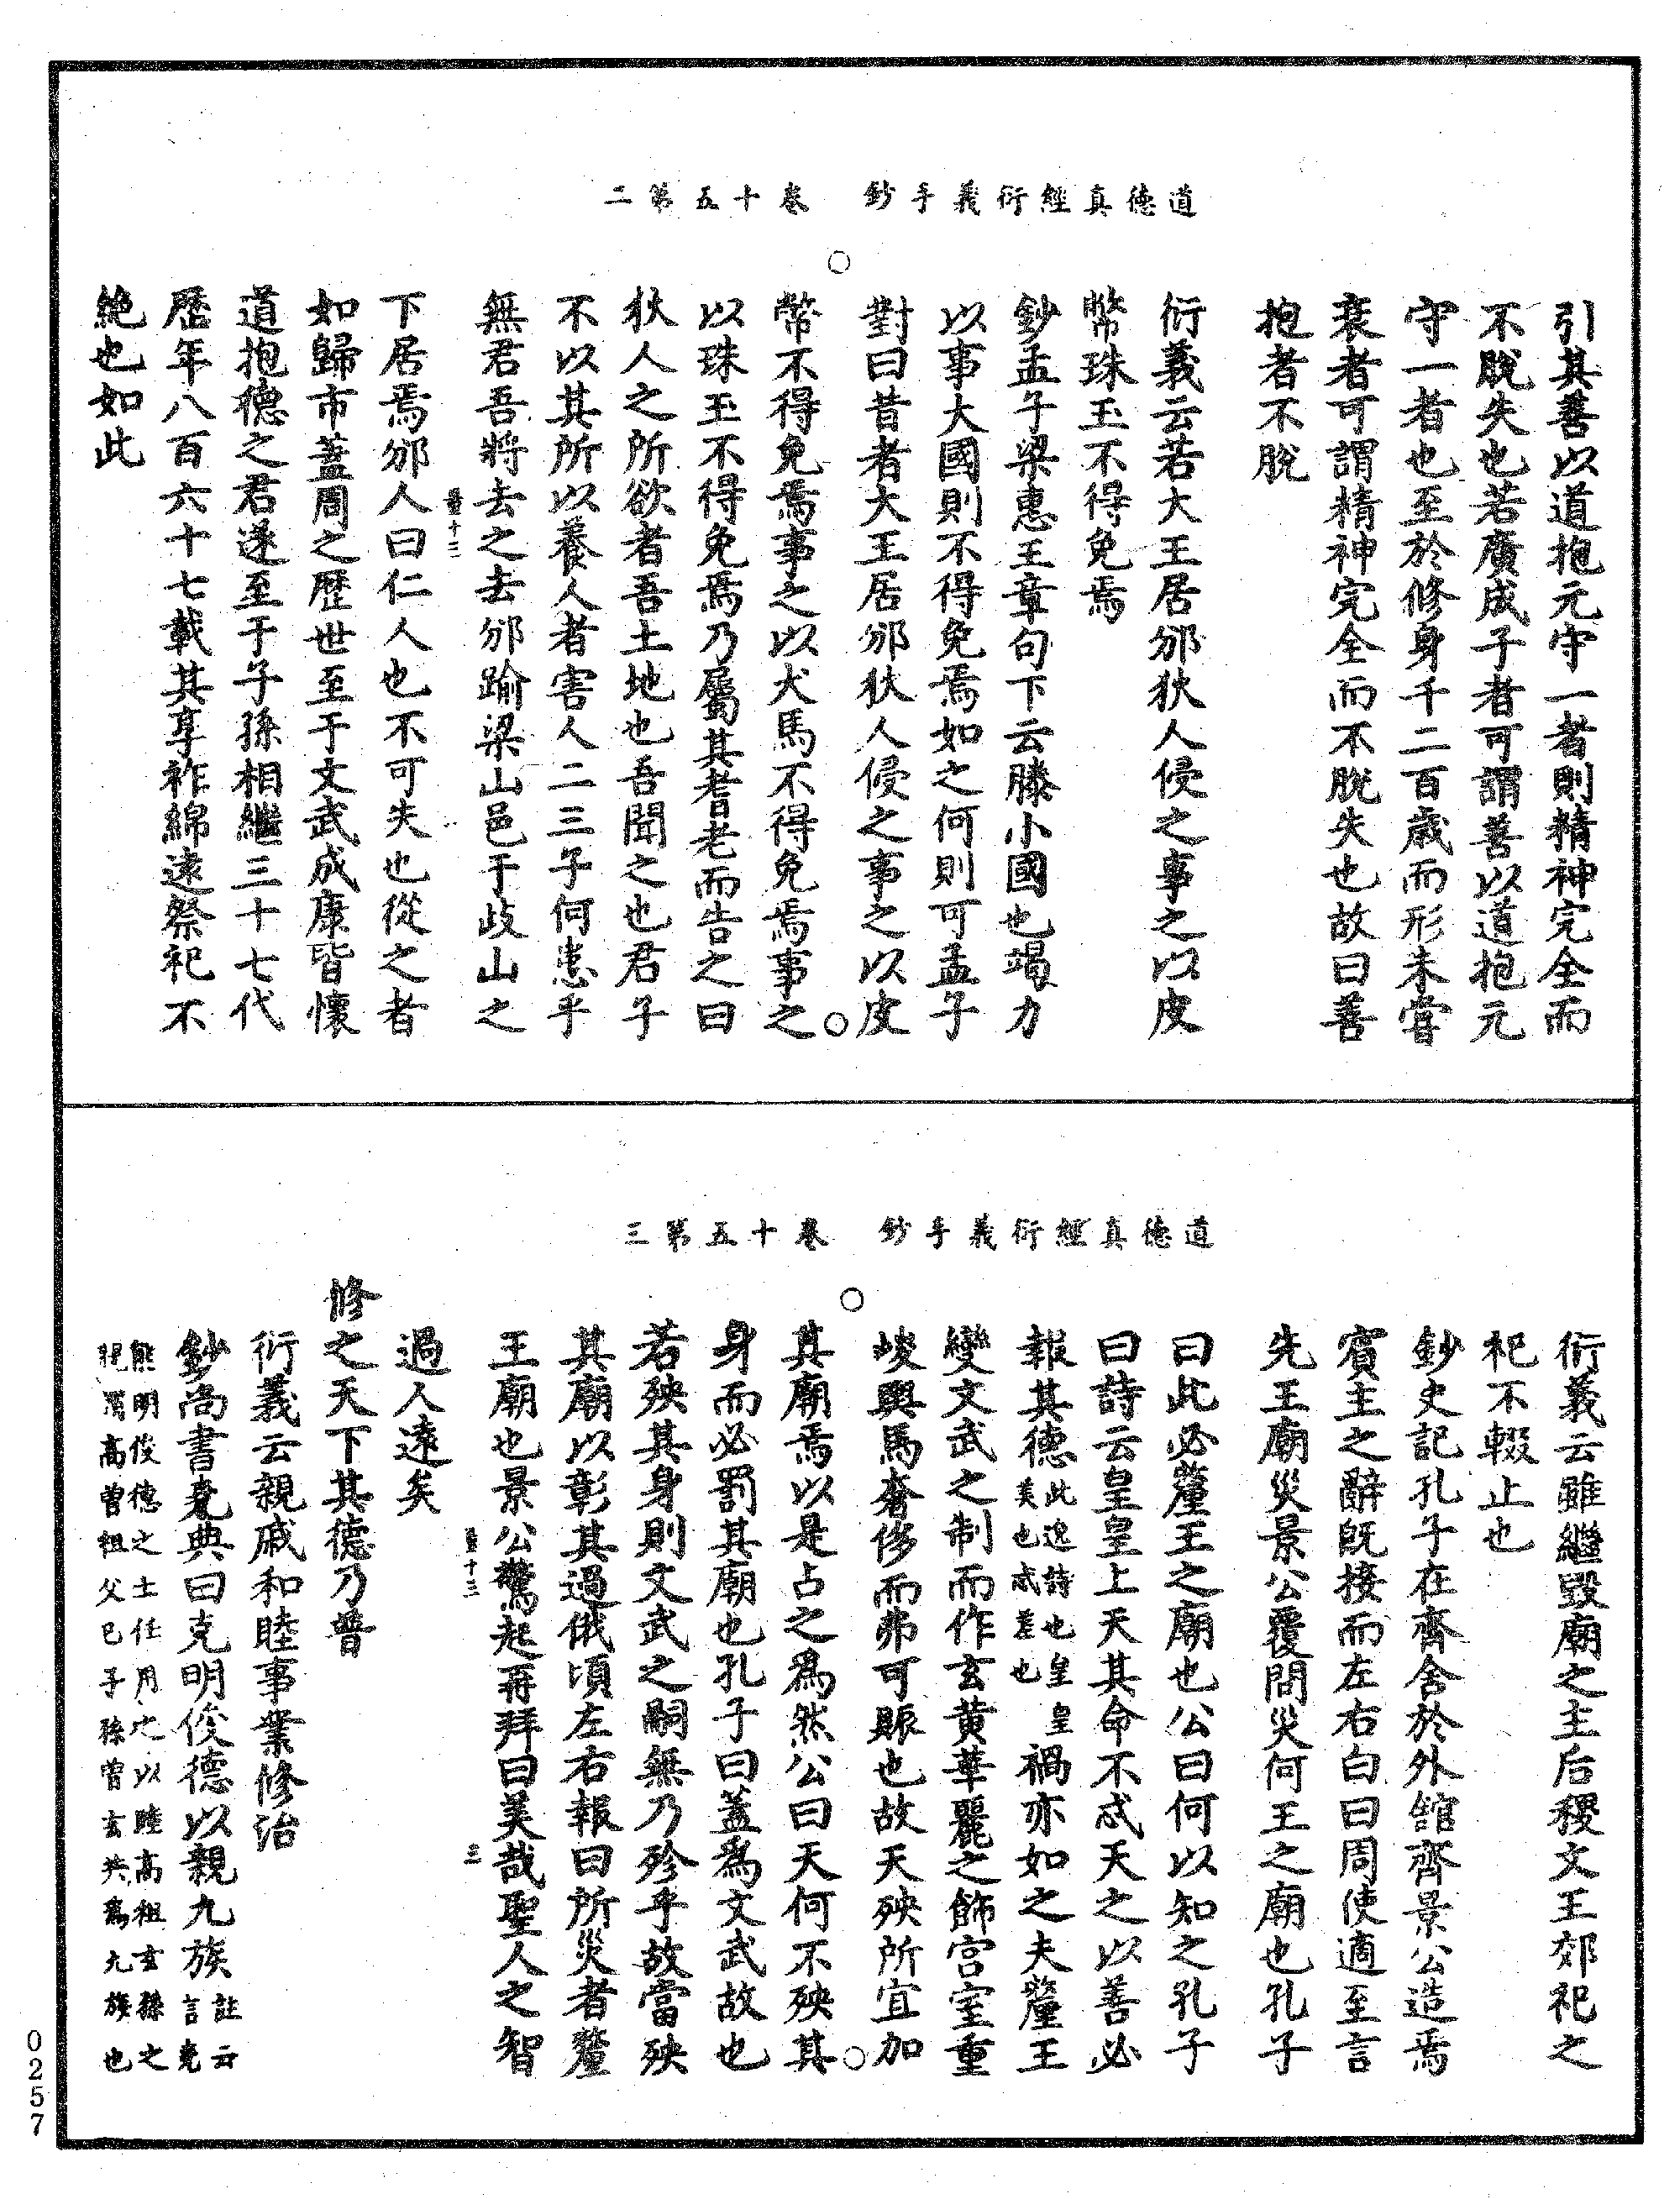 道德真經衍義手鈔　卷十五第二
引其善以道抱元守一者則精神完全而
不脫失也若廣成子者可謂善以道抱元
守一者也至於修身千二百歲而形未嘗
衰者可謂精神完全而不脫失也故曰善
抱者不脫
衍義云若大王居邠狄人侵之事之以皮
幣珠玉不得免焉
鈔孟子梁惠王章句下云滕小國也竭力
以事大國則不得免焉如之何則可孟子
對曰昔者大王居邠狄人侵之事之以皮
幣不得免焉事之以犬馬不得免焉事之
以珠玉不得免焉乃屬其耆老而告之曰
狄人之所欲者吾土地也吾聞之也君子
不以其所以養人者害人二三子何患乎
無君吾將去之去邠踰梁山邑于歧山之
下居焉邠人曰仁人也不可失也從之者
如歸市蓋周之歷世至于文武成康皆懷
道抱德之君遂至于子孫相繼三十七代
歷年八百六十七載其享祚綿遠祭祀不
絕也如此
道德真經衍義手鈔　卷十五第三
衍義云雖繼毀廟之主后稷文王郊祀之
祀不輟止也
鈔史記孔子在齊舍於外館齊景公造焉
賓主之辭既接而左右白曰周使適至言
先王廟災景公覆問災何王之廟也孔子
曰此必釐王之廟也公曰何以知之孔子
曰詩云皇皇上天其命不忒天之以善必
報其德此逸詩也皇皇美也忒差也禍亦如之夫釐王
變文武之制而作玄黃華麗之飾宮室重
峻輿馬奢侈而弗可賑也故天殃所宜加
其廟焉以是占之為然公曰天何不殃其
身而必罰其廟也孔子曰蓋為文武故也
若殃其身則文武之嗣無乃殄乎故當殃
其廟以彰其過俄頃左右報曰所災者釐
王廟也景公驚起再拜曰美哉聖人之智
過人遠矣
修之天下其德乃普
衍義云親戚和睦事業修治
鈔尚書堯典曰克明俊德以親九族註云言堯
能明俊德之士任用之以睦高祖玄孫之
親謂高曾祖父己子孫曾玄共為九族也
0257